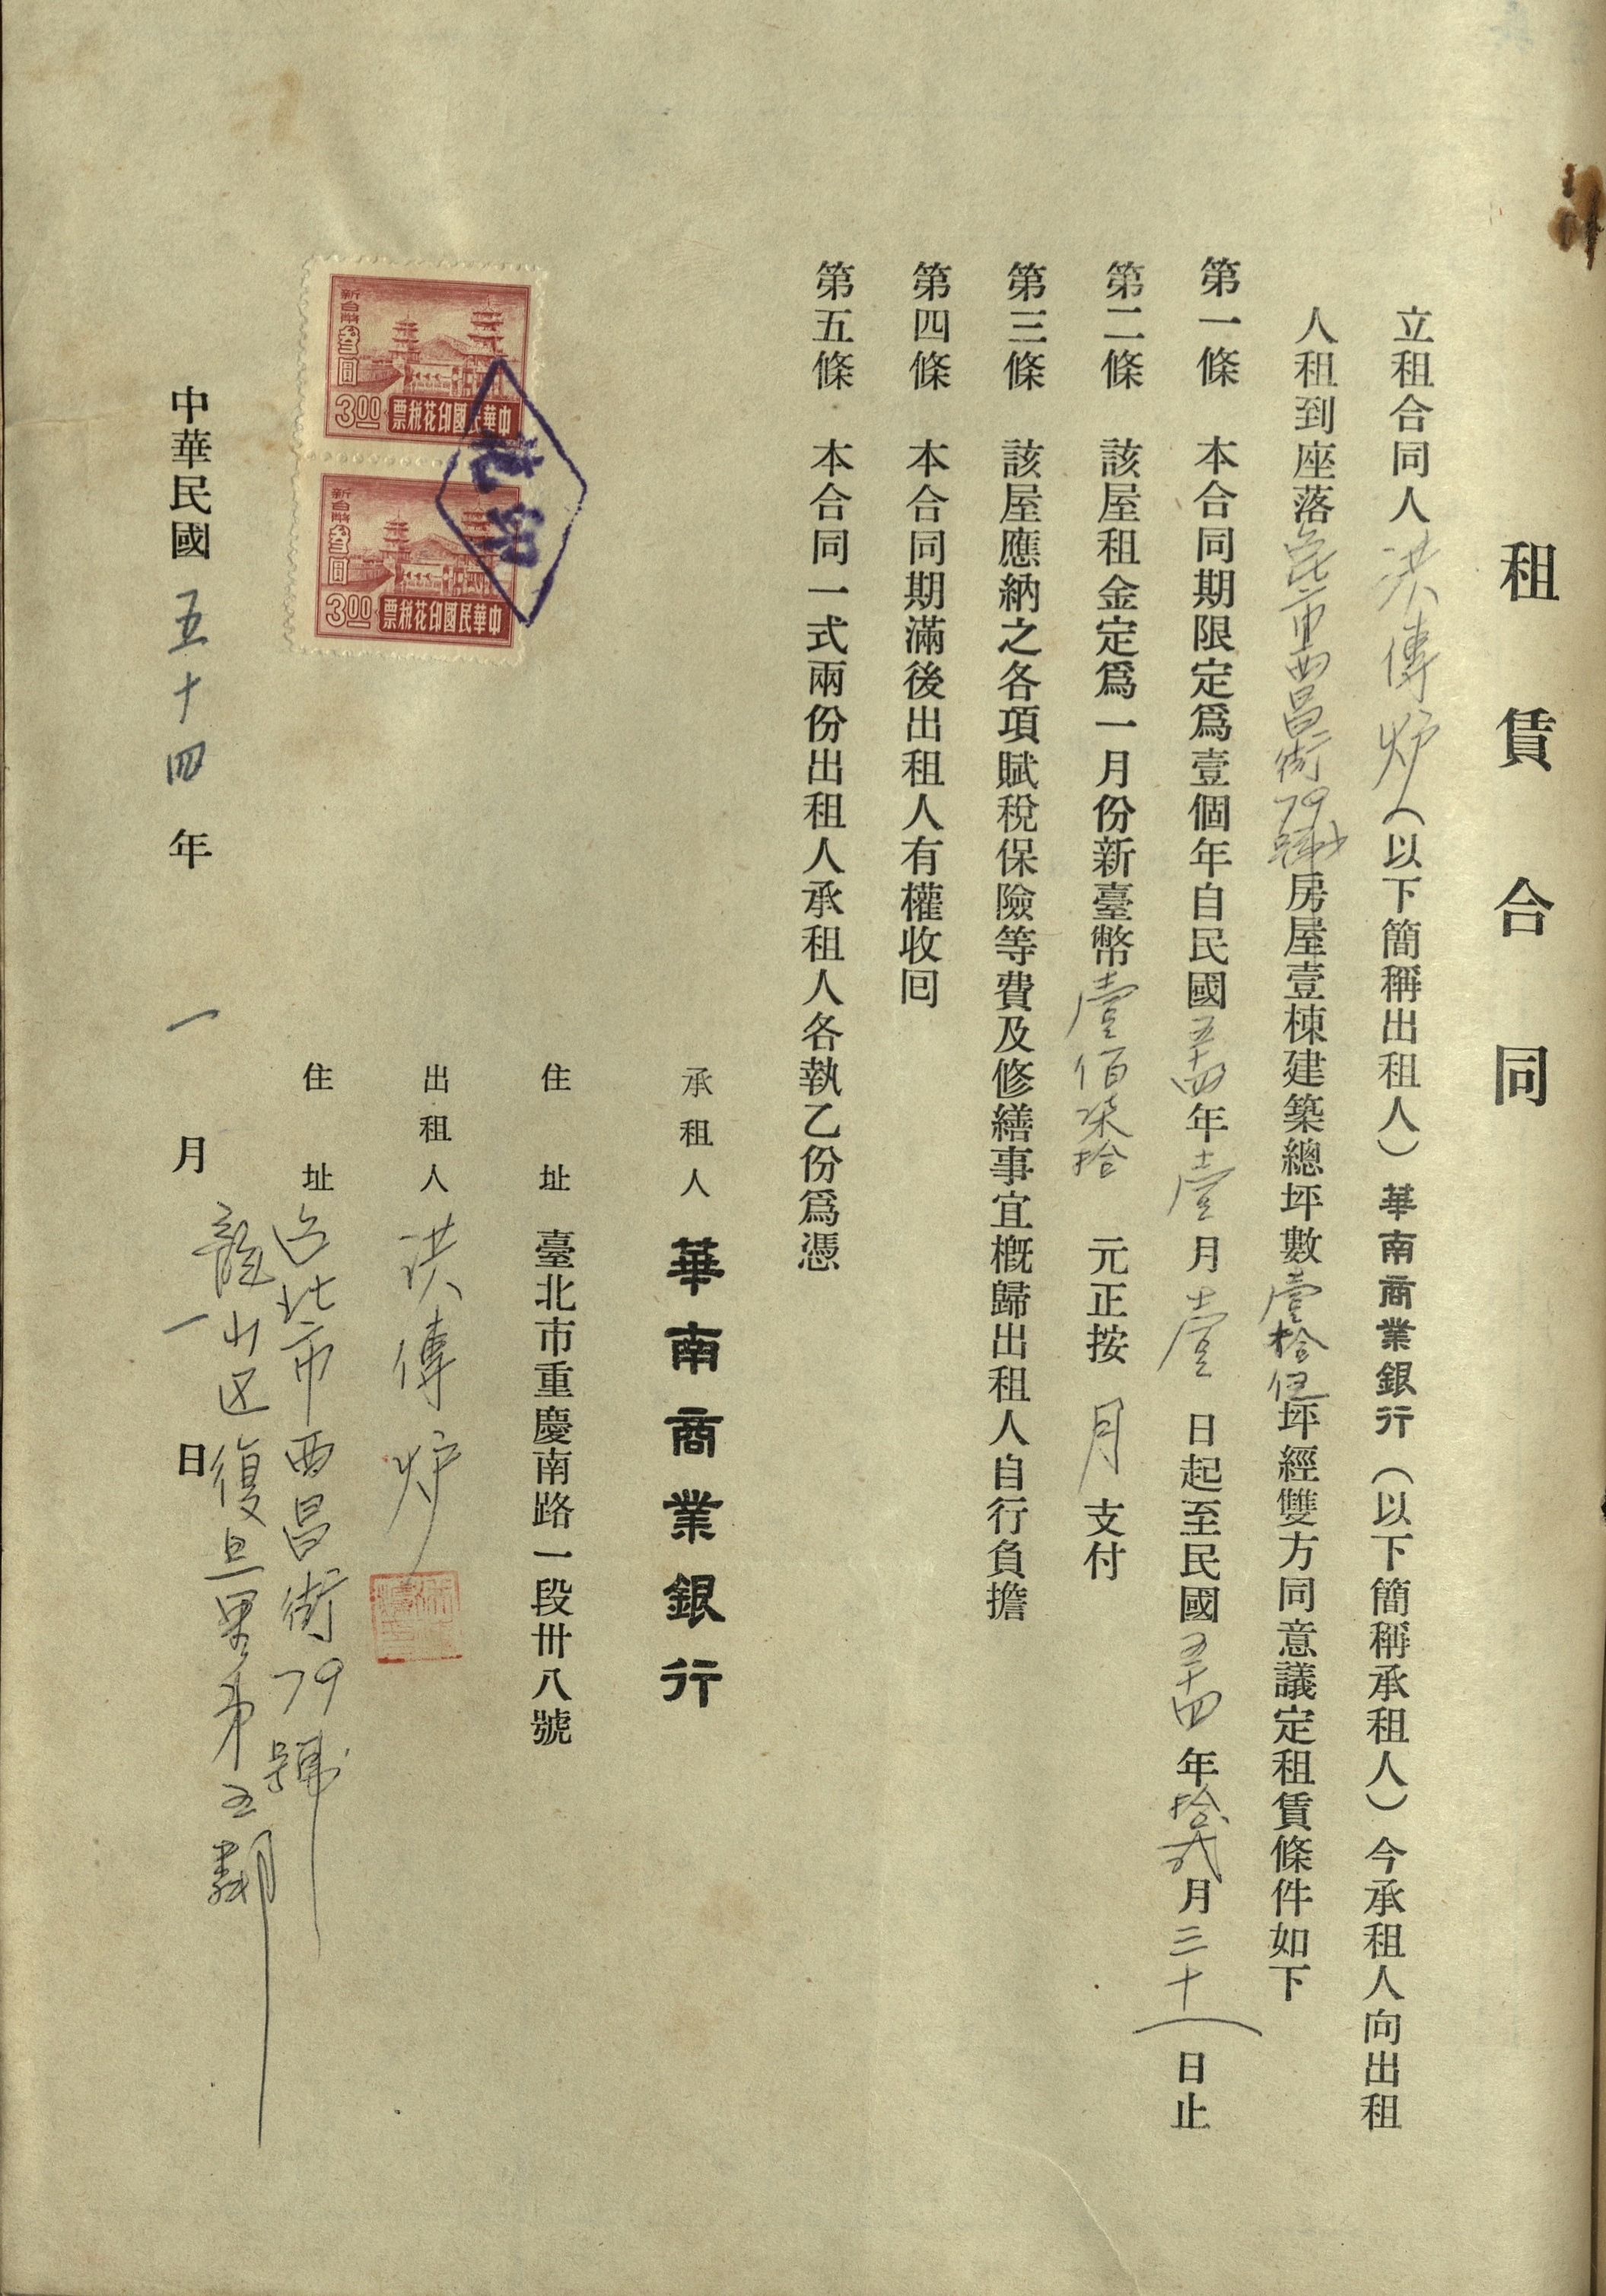 租賃合同
立租合同人洪傳炉（以下簡稱出租人）華南商業銀行（以下簡稱承租人）今承租人向出租
人租到座落西昌街79號房屋壹棟建築總坪數壹拾伍坪經雙方同意議定租賃條件如下
第一條　本合同期限定為壹個年自民國五十四年壹月壹日起至民國五十四年拾弐月三十一日止
第二條　該屋租金定為一月份新臺幣壹佰柒拾元正按月支付
第三條　該屋應納之各項賦稅保險等費及修繕事宜概歸出租人自行負擔
第四條　本合同期滿後出租人有權收回
第五條　本合同一式兩份出租人承租人各執乙份為憑
承租人　華南商業銀行
住址　臺北市重慶南路一段卅八號
出租人　洪傳炉
住址　台北市西昌街79號
龍山区復旦里第五鄰
新台幣叁圓
3.00
中華民國印花稅票
新台幣叁圓
3.00
中華民國印花稅票
中華民國五十四年一月一日